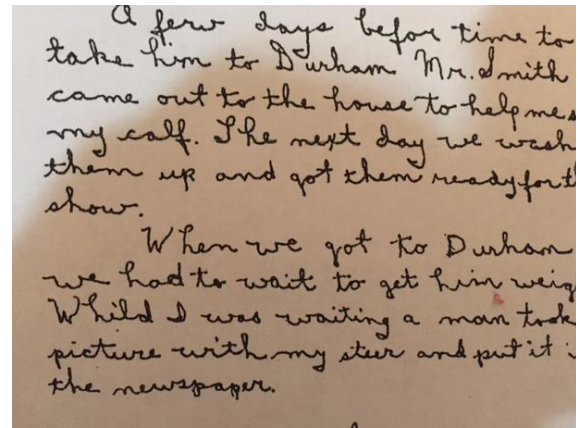 A few days befor time to
take him to Durham Mr. Smith
came out to the house to help me s
my calf. The next day we wash
them up and got them ready for th
show.
When we got to Durham
we had to wait to get him weig
Whild I was waiting a man took
picture with my steer and put it i
the newspaper.